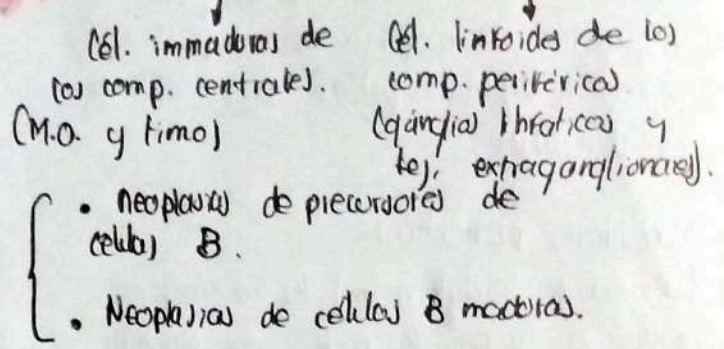 Cél. immaduras de
los comp. centrales.
(M.O. y timo)
Cél. linfoides de los
comp. periféricos
(gánglios linfáticos y
tej. extraganglionares).
• Neoplasias de precursores de
células B.
• Neoplasias de células B maduras.